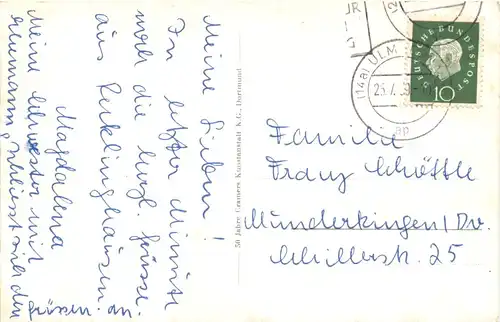 Meine Lieben!
In letzter Minute
noch die herzl. Grüsse
aus Recklinghausen
Magdalena
Meine Schwester mit
Ehemann, schliesst sich den
Grüssen an.
50 Jahre Cramers Kunstanstalt K.G., Dortmund
(14a) ULM
DEUTSCHE BUNDESPOST
10
Familie
Franz Schöttle
Munderkingen/Do.
Schillerstr. 25